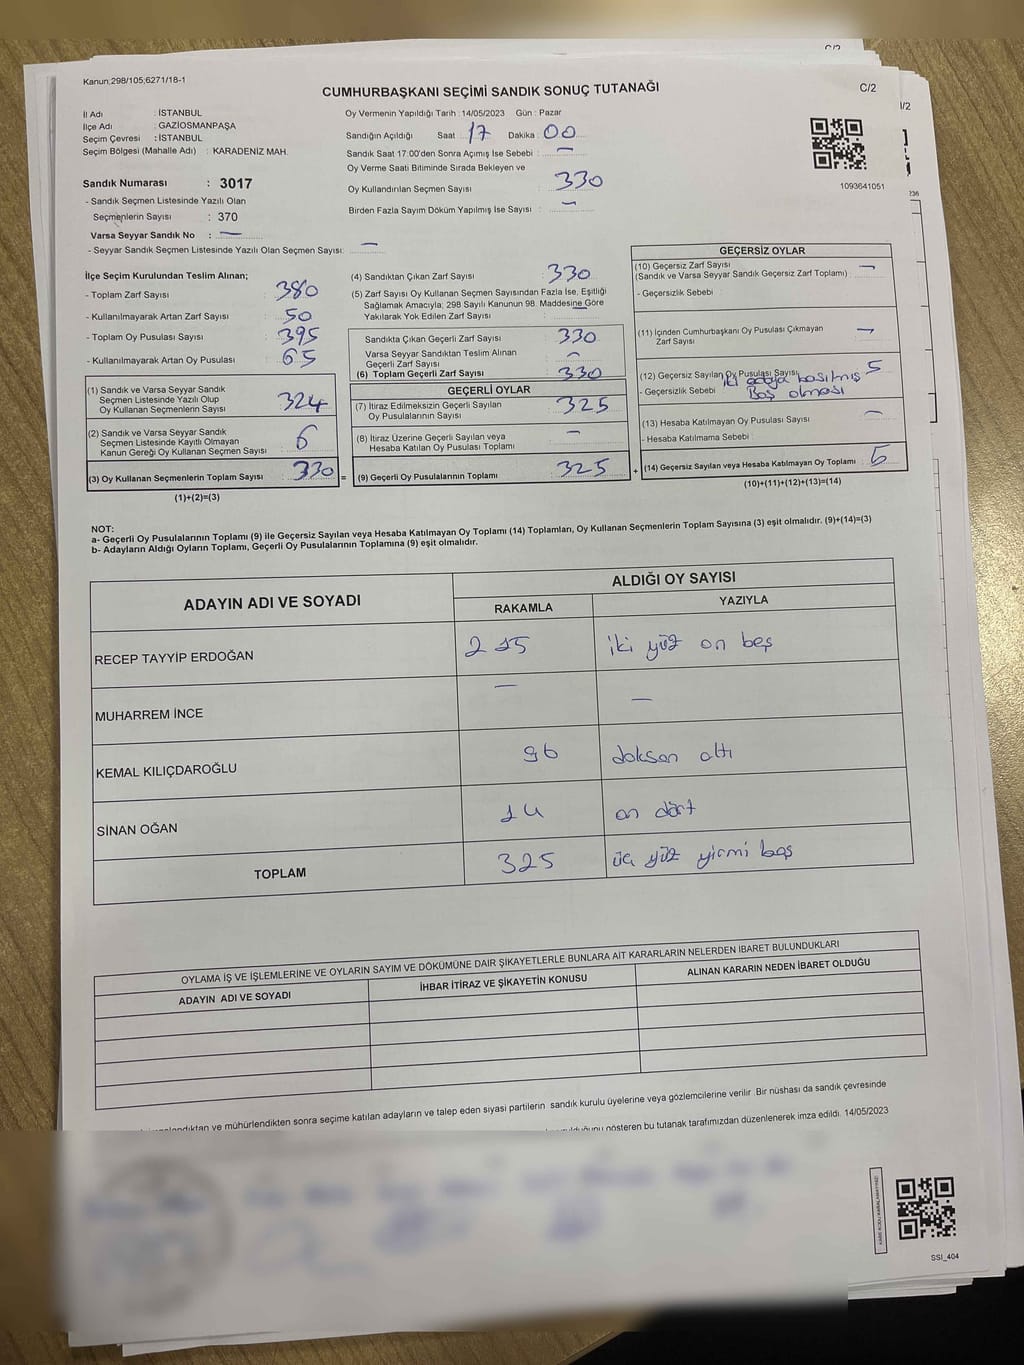 C/2
Kanun:298/105;6271/18-1
CUMHURBAŞKANI SEÇİMİ SANDIK SONUÇ TUTANAĞI
C/2
İl Adı : İSTANBUL
İlçe Adı : GAZİOSMANPAŞA
Seçim Çevresi : İSTANBUL
Seçim Bölgesi (Mahalle Adı) : KARADENİZ MAH.
Sandık Numarası : 3017
- Sandık Seçmen Listesinde Yazılı Olan
Seçmenlerin Sayısı : 370
Varsa Seyyar Sandık No : —
- Seyyar Sandık Seçmen Listesinde Yazılı Olan Seçmen Sayısı: —
Oy Vermenin Yapıldığı Tarih : 14/05/2023 Gün : Pazar
Sandığın Açıldığı Saat : 17 Dakika : 00
Sandık Saat 17:00'den Sonra Açımış İse Sebebi : —
Oy Verme Saati Bitiminde Sırada Bekleyen ve
Oy Kullandırılan Seçmen Sayısı : 330
Birden Fazla Sayım Döküm Yapılmış İse Sayısı : —
1093641051
I/2
236
İlçe Seçim Kurulundan Teslim Alınan;
- Toplam Zarf Sayısı : 380
- Kullanılmayarak Artan Zarf Sayısı : 50
- Toplam Oy Pusulası Sayısı : 395
- Kullanılmayarak Artan Oy Pusulası : 65
(1) Sandık ve Varsa Seyyar Sandık
Seçmen Listesinde Yazılı Olup
Oy Kullanan Seçmenlerin Sayısı : 324
(2) Sandık ve Varsa Seyyar Sandık
Seçmen Listesinde Kayıtlı Olmayan
Kanun Gereği Oy Kullanan Seçmen Sayısı : 6
(3) Oy Kullanan Seçmenlerin Toplam Sayısı : 330 =
(1)+(2)=(3)
(4) Sandıktan Çıkan Zarf Sayısı : 330
(5) Zarf Sayısı Oy Kullanan Seçmen Sayısından Fazla İse, Eşitliği
Sağlamak Amacıyla; 298 Sayılı Kanunun 98. Maddesine Göre
Yakılarak Yok Edilen Zarf Sayısı : —
Sandıkta Çıkan Geçerli Zarf Sayısı : 330
Varsa Seyyar Sandıktan Teslim Alınan
Geçerli Zarf Sayısı : —
(6) Toplam Geçerli Zarf Sayısı : 330
GEÇERLİ OYLAR
(7) İtiraz Edilmeksizin Geçerli Sayılan
Oy Pusulalarının Sayısı : 325
(8) İtiraz Üzerine Geçerli Sayılan veya
Hesaba Katılan Oy Pusulası Toplamı : —
(9) Geçerli Oy Pusulalarının Toplamı : 325 +
GEÇERSİZ OYLAR
(10) Geçersiz Zarf Sayısı
(Sandık ve Varsa Seyyar Sandık Geçersiz Zarf Toplamı) : —
- Geçersizlik Sebebi :
(11) İçinden Cumhurbaşkanı Oy Pusulası Çıkmayan
Zarf Sayısı : —
(12) Geçersiz Sayılan Oy Pusulası Sayısı : 5
- Geçersizlik Sebebi : iki adaya basılmış
Boş olması
(13) Hesaba Katılmayan Oy Pusulası Sayısı : —
- Hesaba Katılmama Sebebi :
(14) Geçersiz Sayılan veya Hesaba Katılmayan Oy Toplamı : 5
(10)+(11)+(12)+(13)=(14)
NOT:
a- Geçerli Oy Pusulalarının Toplamı (9) ile Geçersiz Sayılan veya Hesaba Katılmayan Oy Toplamı (14) Toplamları, Oy Kullanan Seçmenlerin Toplam Sayısına (3) eşit olmalıdır. (9)+(14)=(3)
b- Adayların Aldığı Oyların Toplamı, Geçerli Oy Pusulalarının Toplamına (9) eşit olmalıdır.
ADAYIN ADI VE SOYADI ALDIĞI OY SAYISI
RAKAMLA YAZIYLA
RECEP TAYYİP ERDOĞAN 215 iki yüz on beş
MUHARREM İNCE — —
KEMAL KILIÇDAROĞLU 96 doksan altı
SİNAN OĞAN 14 on dört
TOPLAM 325 üç yüz yirmi beş
OYLAMA İŞ VE İŞLEMLERİNE VE OYLARIN SAYIM VE DÖKÜMÜNE DAİR ŞİKAYETLERLE BUNLARA AİT KARARLARIN NELERDEN İBARET BULUNDUKLARI
ADAYIN ADI VE SOYADI İHBAR İTİRAZ VE ŞİKAYETİN KONUSU ALINAN KARARIN NEDEN İBARET OLDUĞU
ve mühürlendikten sonra seçime katılan adayların ve talep eden siyasi partilerin sandık kurulu üyelerine veya gözlemcilerine verilir. Bir nüshası da sandık çevresinde
gösteren bu tutanak tarafımızdan düzenlenerek imza edildi. 14/05/2023
SSI_404